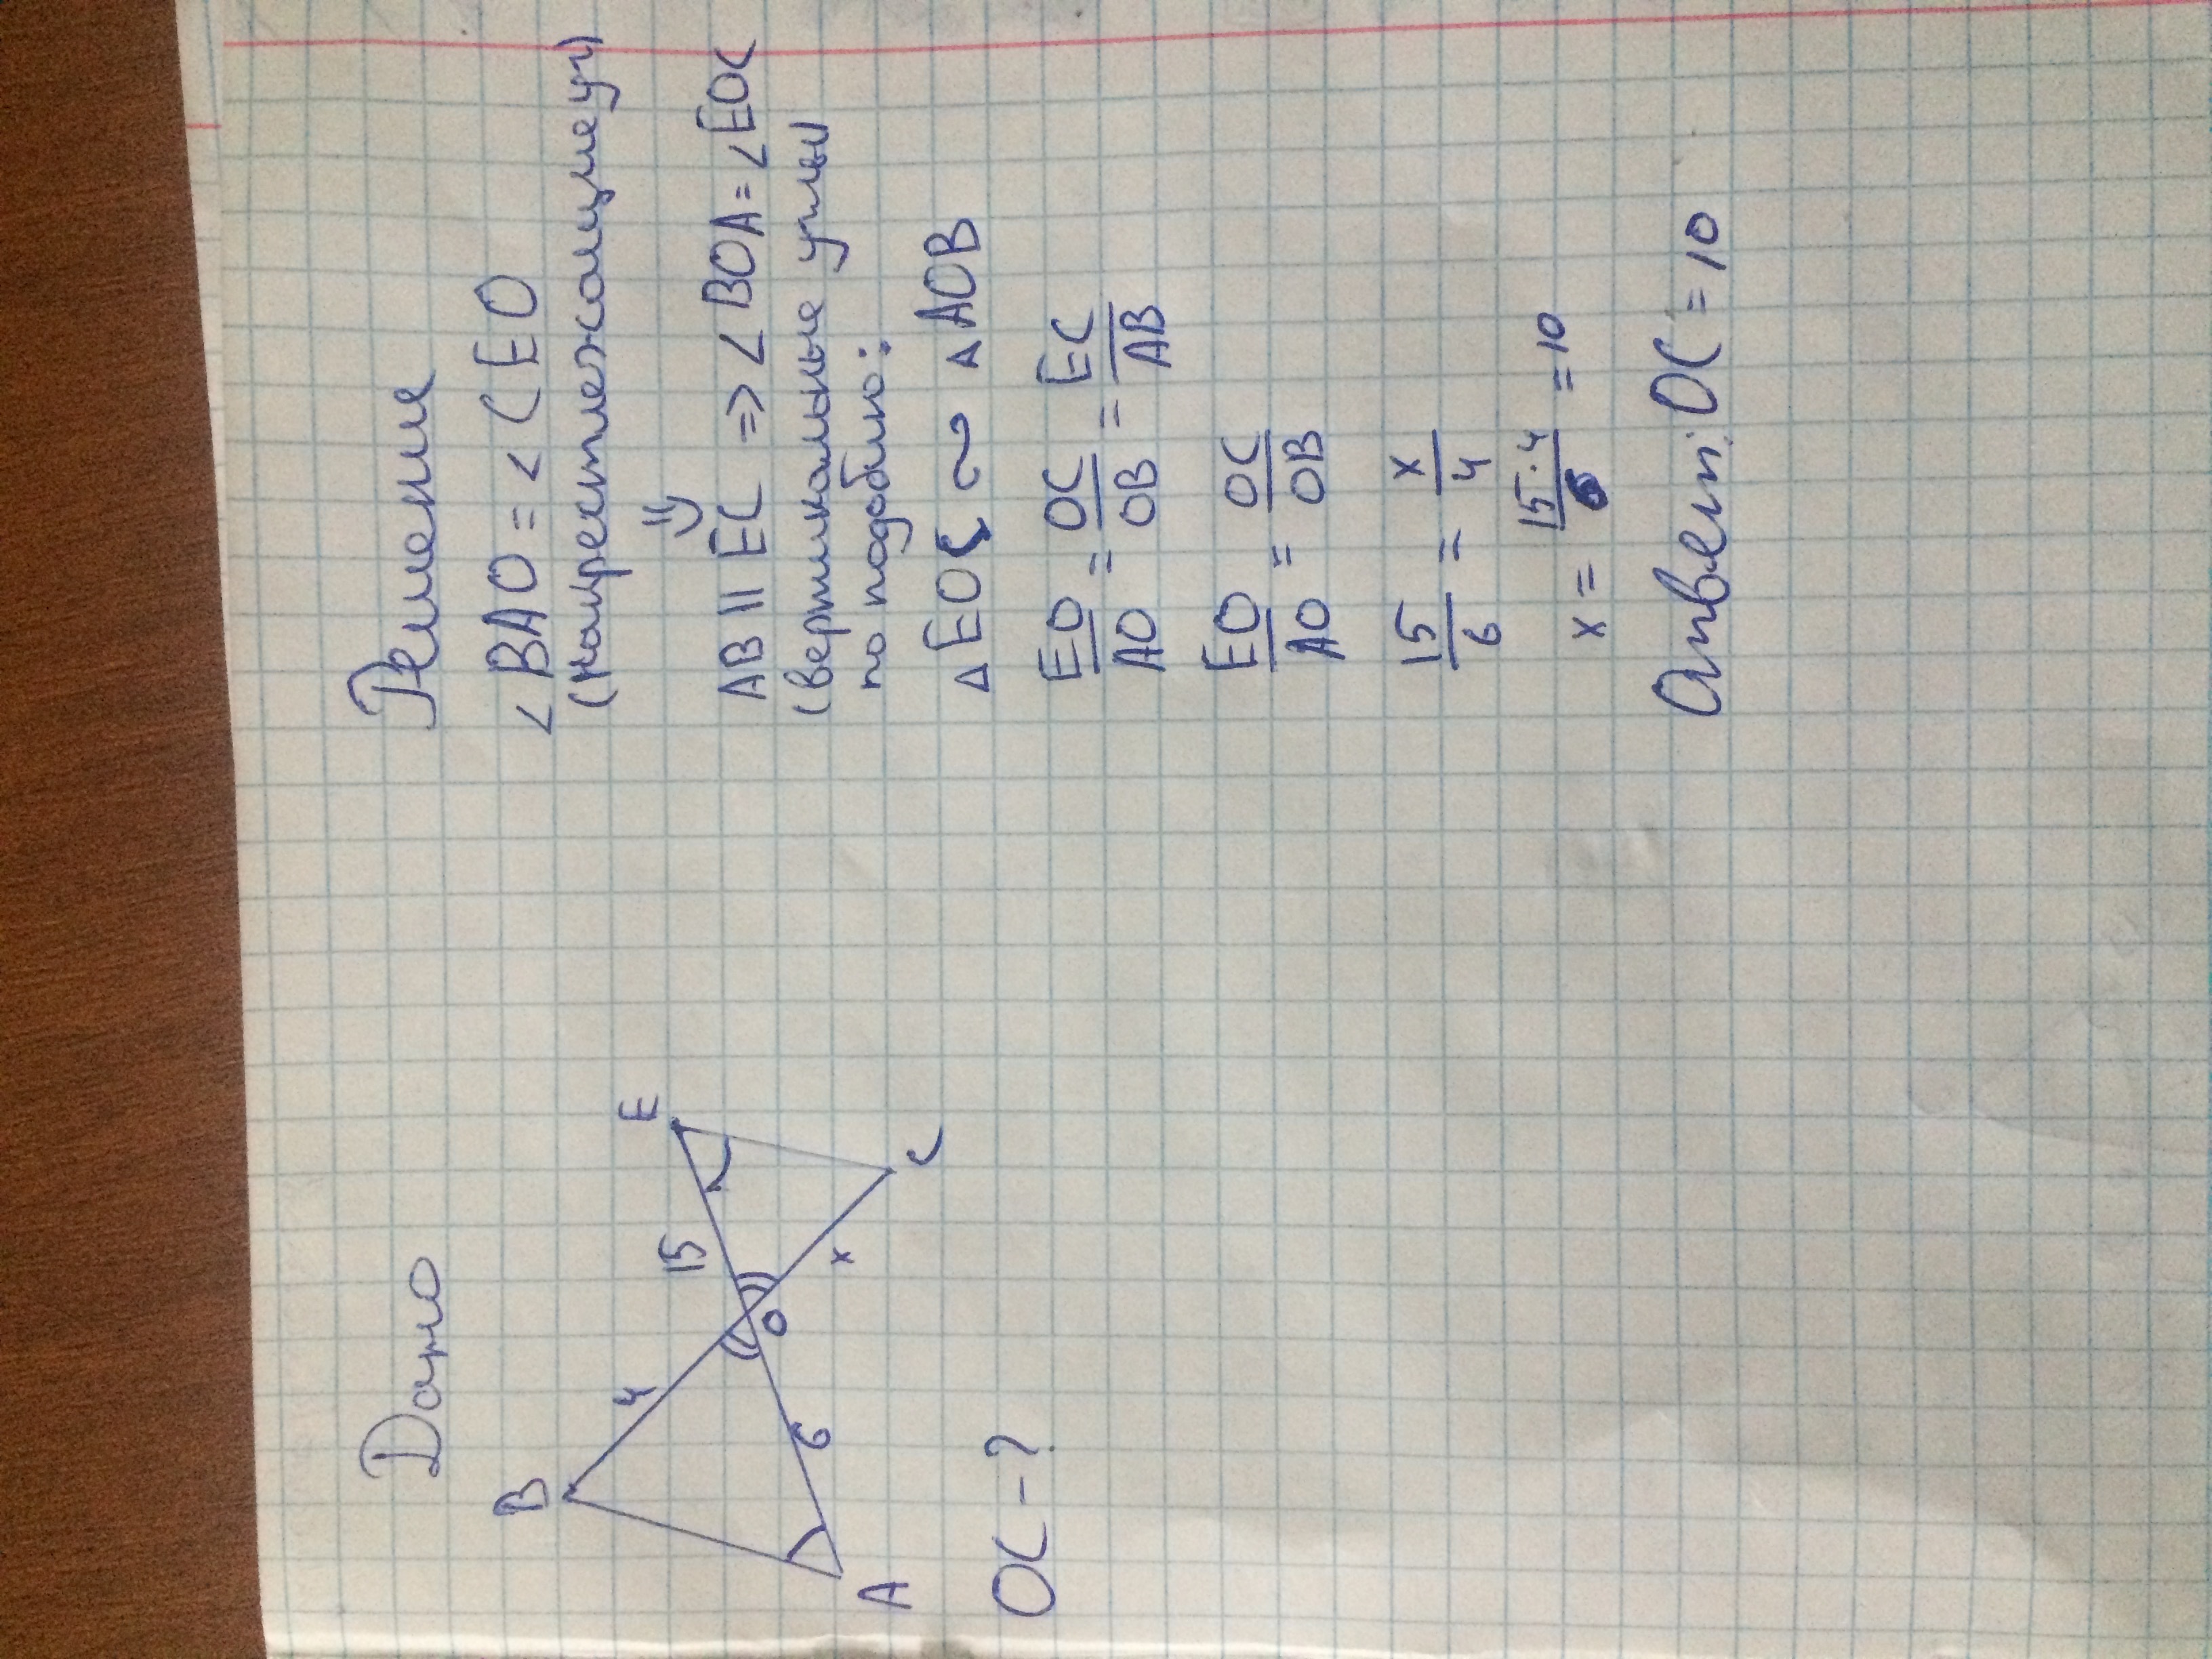 Дано
B
E
4
15
O
6
x
A
C
OC - ?
Решение
∠BAO = ∠CEO
(накрест леж
⇓
AB || EC ⇒ ∠BOA = ∠EOC
(вертикальные углы
по подобию:
△EOC ∼ △AOB
EO/AO = OC/OB = EC/AB
EO/AO = OC/OB
15/6 = x/4
x = 15·4/6 = 10
Ответ: OC = 10